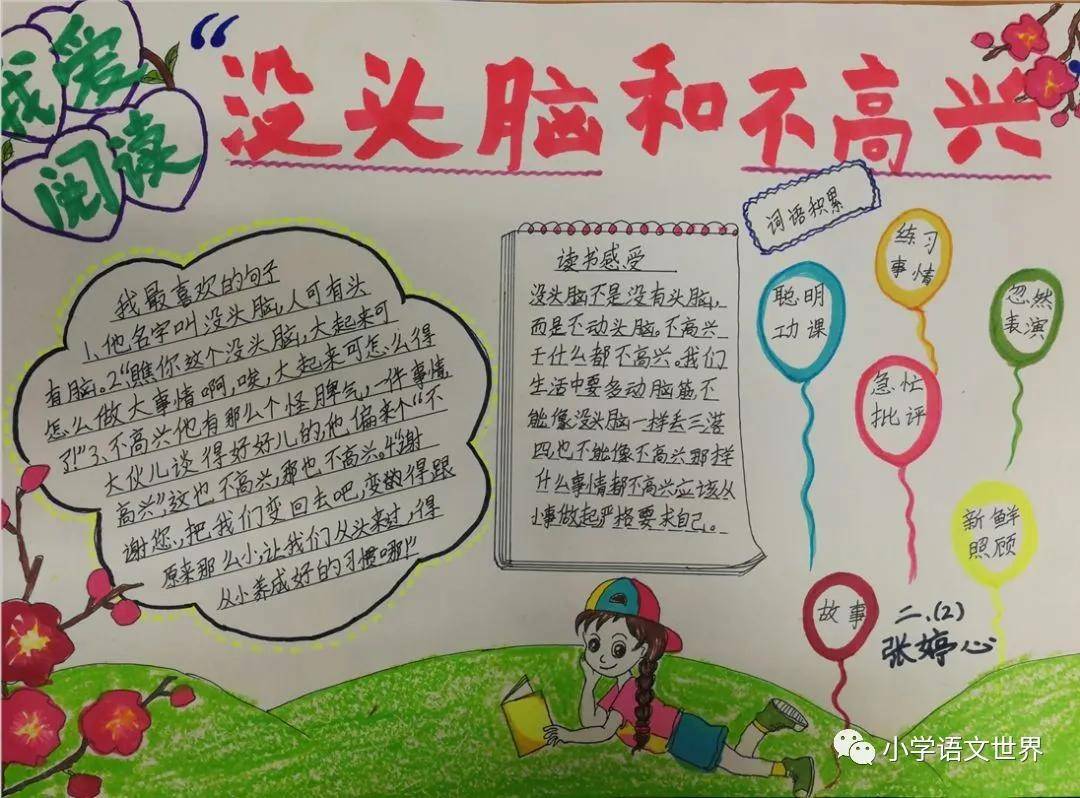 我爱
阅读
“没头脑和不高兴”
我最喜欢的句子
1、他名字叫没头脑,人可有头
有脑。2“瞧你这个没头脑,大起来可
怎么做大事情啊,唉,大起来可怎么得
了!”3、不高兴他有那么个怪脾气,一件事情
大伙儿谈得好好儿的,他偏来个“不
高兴”,这也不高兴,那也不高兴。4“谢
谢您,把我们变回去吧,变得跟
原来那么小,让我们从头来过,得
从小养成好的习惯哪!”
读书感受
没头脑不是没有头脑,
而是不动头脑。不高兴
干什么都不高兴。我们
生活中要多动脑筋,不
能像没头脑一样丢三落
四,也不能像不高兴那样
什么事情都不高兴应该从
小事做起严格要求自己。
词语积累
练习
事情
聪明
功课
忽然
表演
急忙
批评
新鲜
照顾
故事
二、(2)
张婷心
小学语文世界